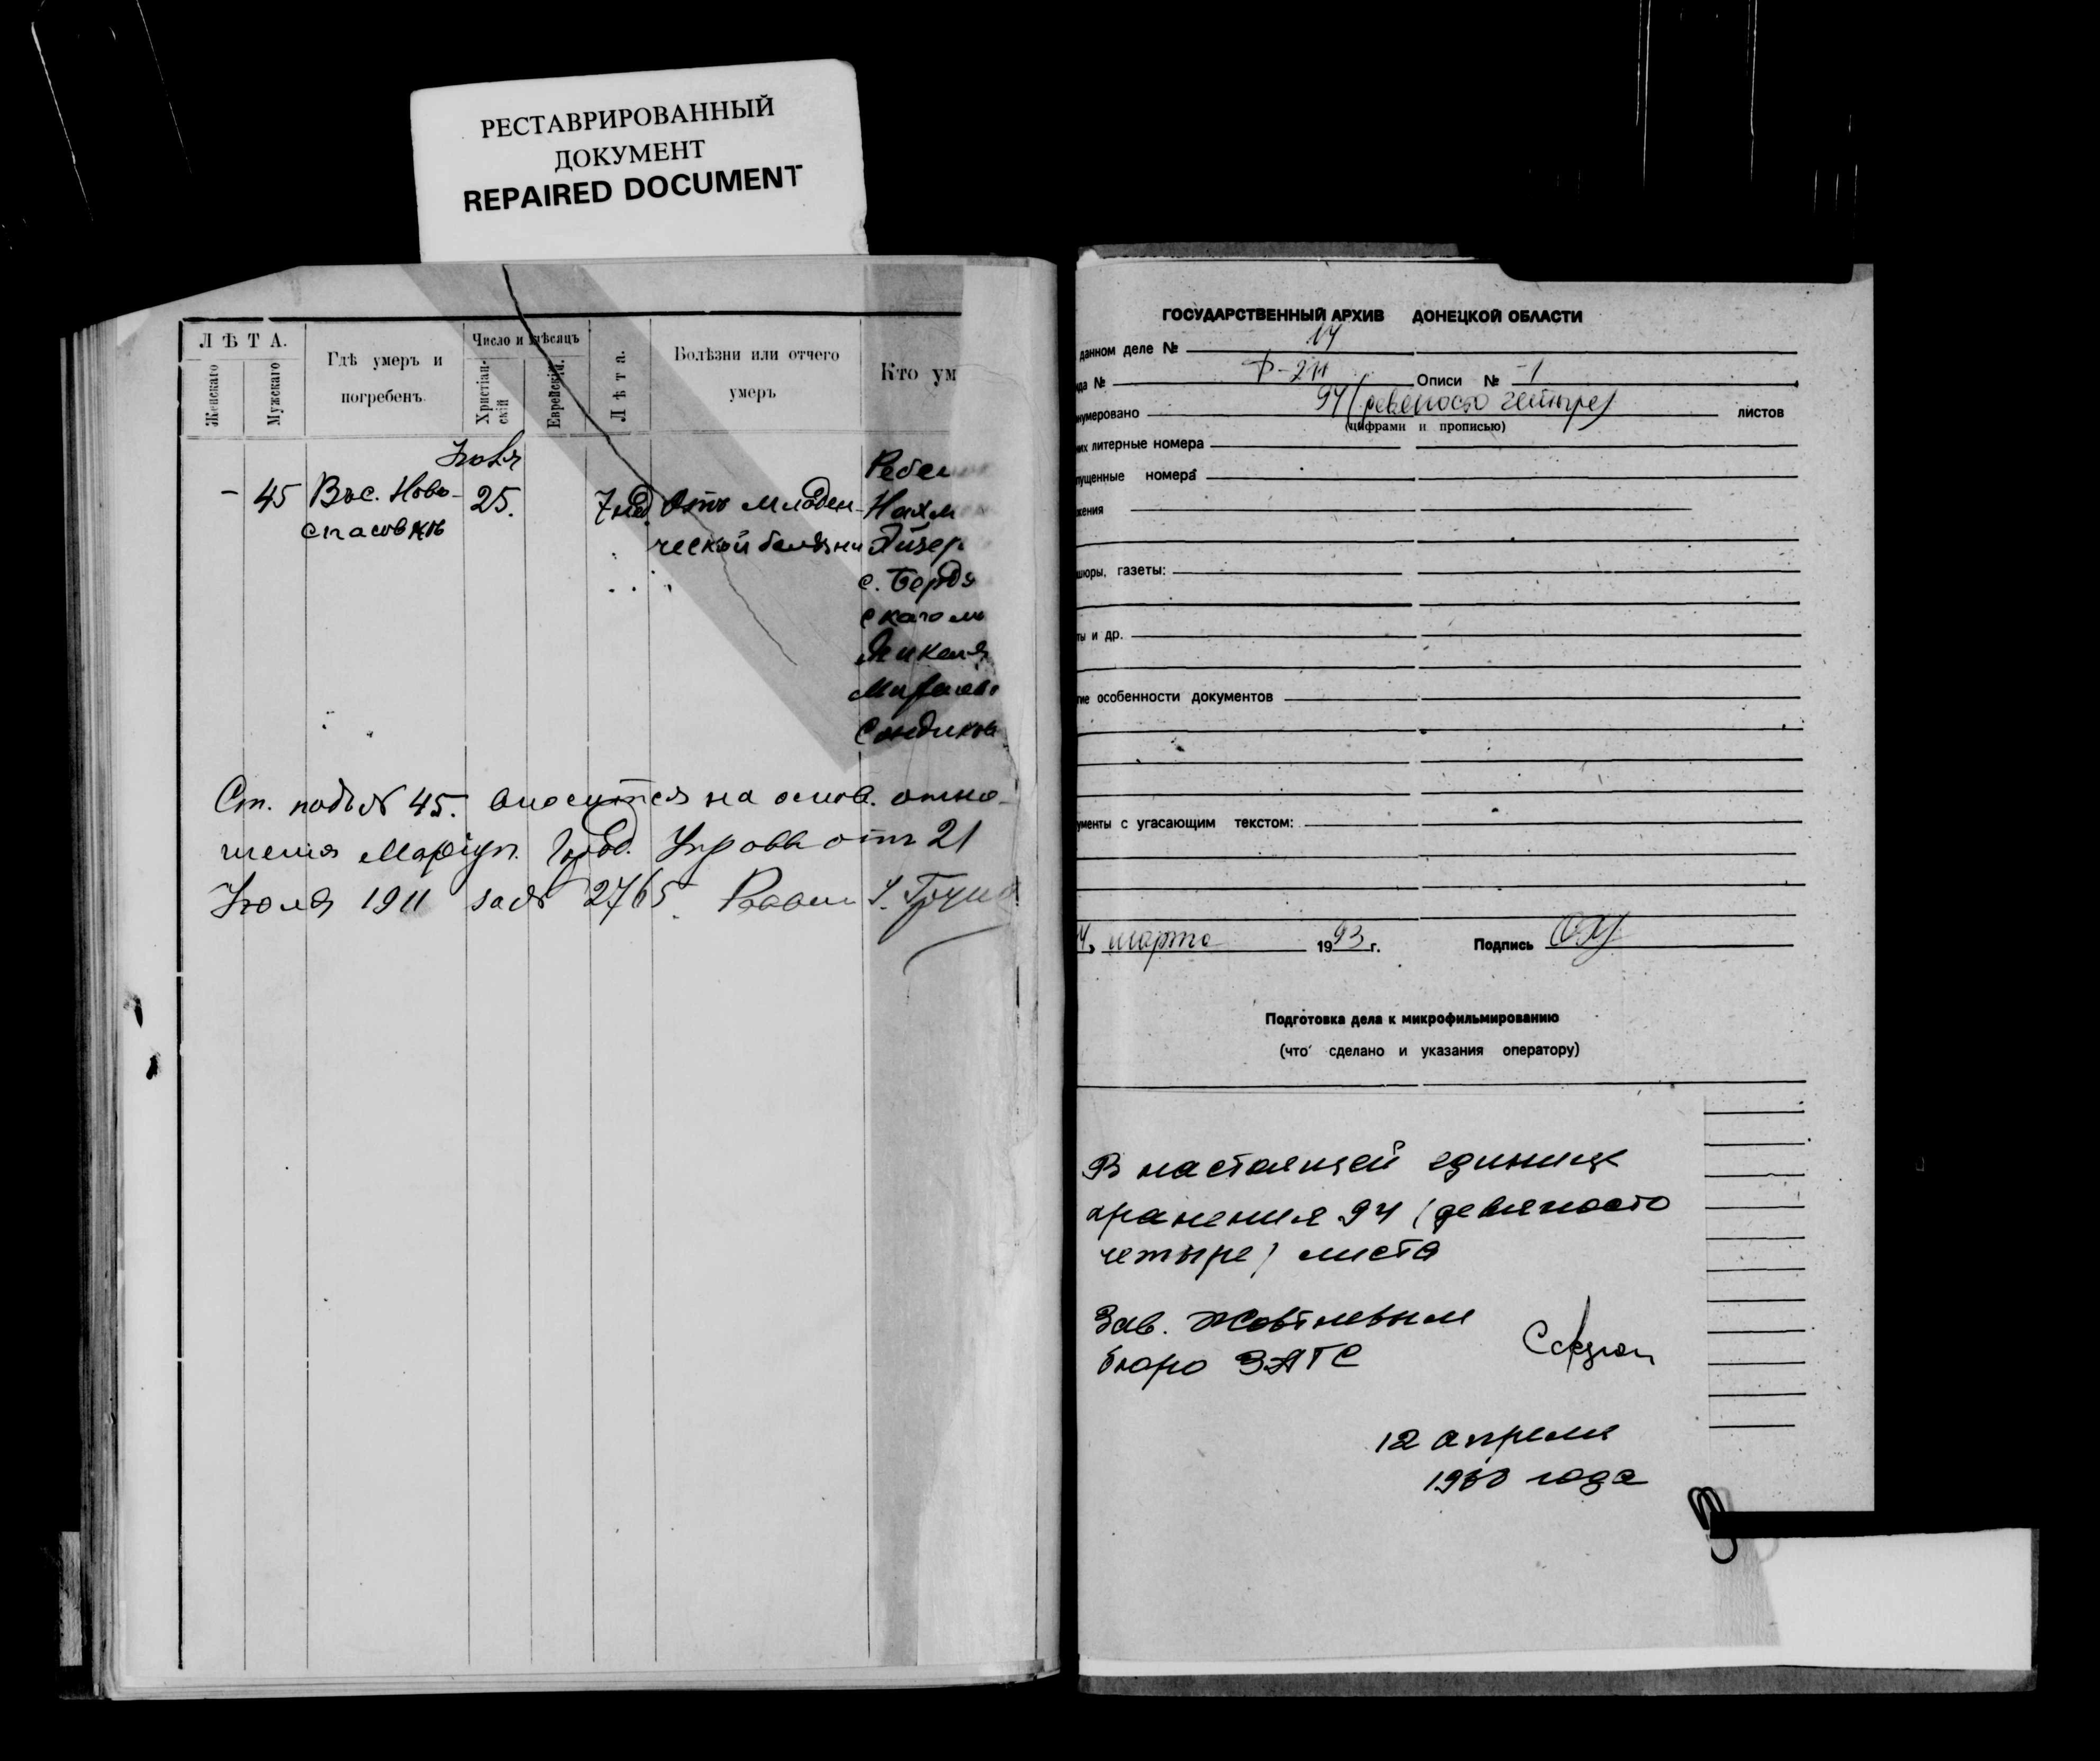 РЕСТАВРИРОВАННЫЙ
ДОКУМЕНТ
REPAIRED DOCUMENT
Л Ѣ Т А.
Женскаго
Мужскаго
Гдѣ умеръ и
погребенъ.
Число и мѣсяцъ
Христіан-
скій
Еврейскій.
Л ѣ т а.
Болѣзни или отчего
умеръ
Кто ум
- 45 Въ с. Ново- 25. 7 нед. Отъ младен-
спасовкѣ
ческой болѣзни
Ребен
Нахм
Айзер
с. Бердя
скаго
Ст. подъ № 45. вносится на основ. отно-
шенія Маріуп. Город. Управы отъ 21
Іюля 1911 за № 2765. Раввин
ГОСУДАРСТВЕННЫЙ АРХИВ ДОНЕЦКОЙ ОБЛАСТИ
данном деле № 14
да № Ф-211 Описи № 1
нумеровано 94 (девяносто четыре) листов
(цифрами и прописью)
их литерные номера
пущенные номера
жения
шюры, газеты:
ты и др.
гие особенности документов
ументы с угасающим текстом:
4, марта 1993 г. Подпись
Подготовка дела к микрофильмированию
(что сделано и указания оператору)
В настоящей единице
хранения 94 (девяносто
четыре) листа
Зав. Жовтневым
бюро ЗАГС
12 апреля
1960 года